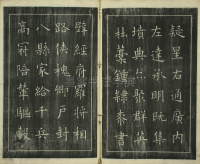 疑星右通廣内
左達承明既集
墳典亦聚群英
杜藁鍾隸漆書
壁經府羅將相
路俠槐卿戶封
八縣家給千兵
高冠陪輦驅轂